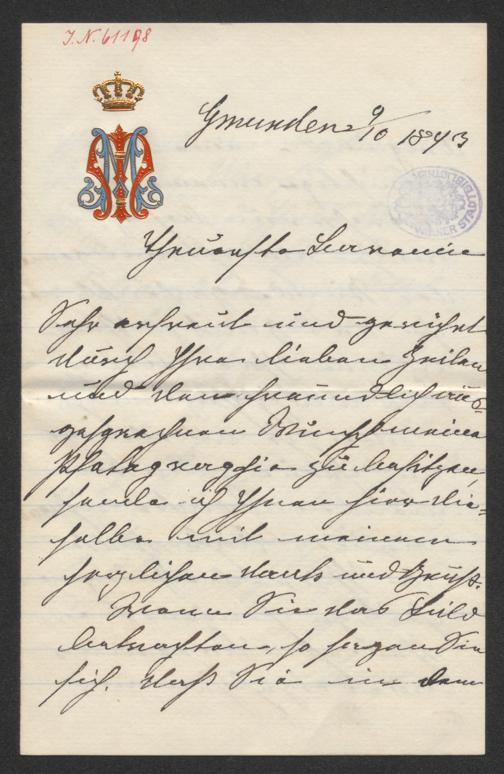 J. N. 61198
Gmunden 9/10 1893
Theuerste Baronin
Sehr erfreut und gerührt
durch Ihre lieben Zeilen
und den freundlich aus-
gesprochnen Wunsch meine
Photographie zu besitzen,
sende ich Ihnen hier die-
selbe mit meinem
herzlichen Dank und Gruß.
Wenn Sie das Bild
betrachten, so sagen Sie
sich, daß Sie in dem